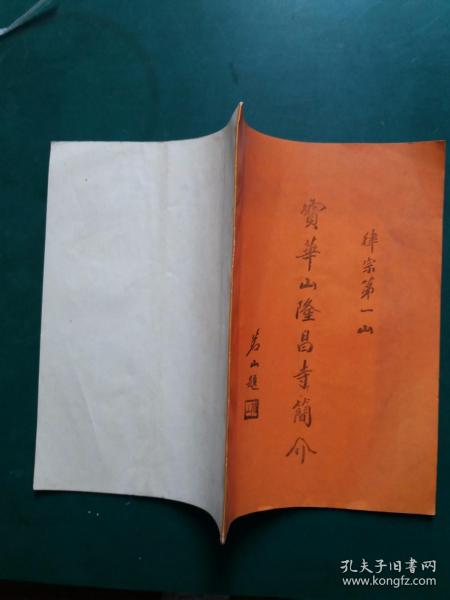 律宗第一山
寶華山隆昌寺簡介
茗山題
孔夫子旧书网
www.kongfz.com